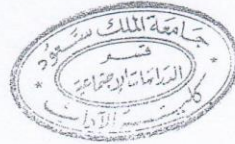 جامعة الملك سعود
قسم
الدراسات الإجتماعية
كلية الآداب